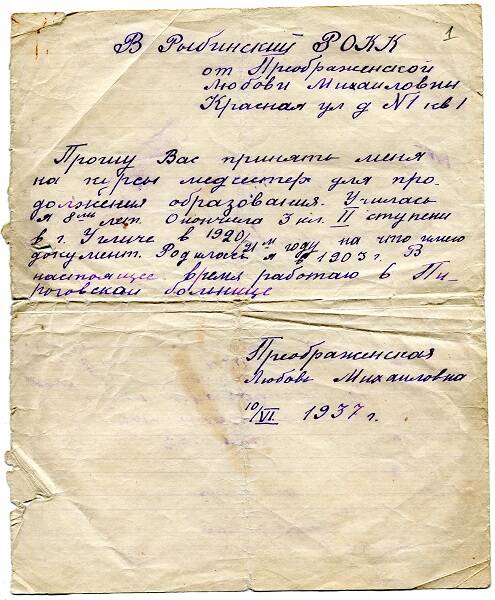 1
В Рыбинский РОКК
от Преображенской
Любови Михаиловны
Красная ул д N1 кв 1
Прошу Вас принять меня
на курсы медсестер для про-
должения образования. Училась
я 8ми лет. Окончила 3 кл. II ступени
в г. Угличе в 1920/21 м году на что имею
документ. Родилась я в 1903 г. В
настоящее время работаю в Пи-
роговской больнице
Преображенская
Любовь Михаиловна
10/VI. 1937 г.